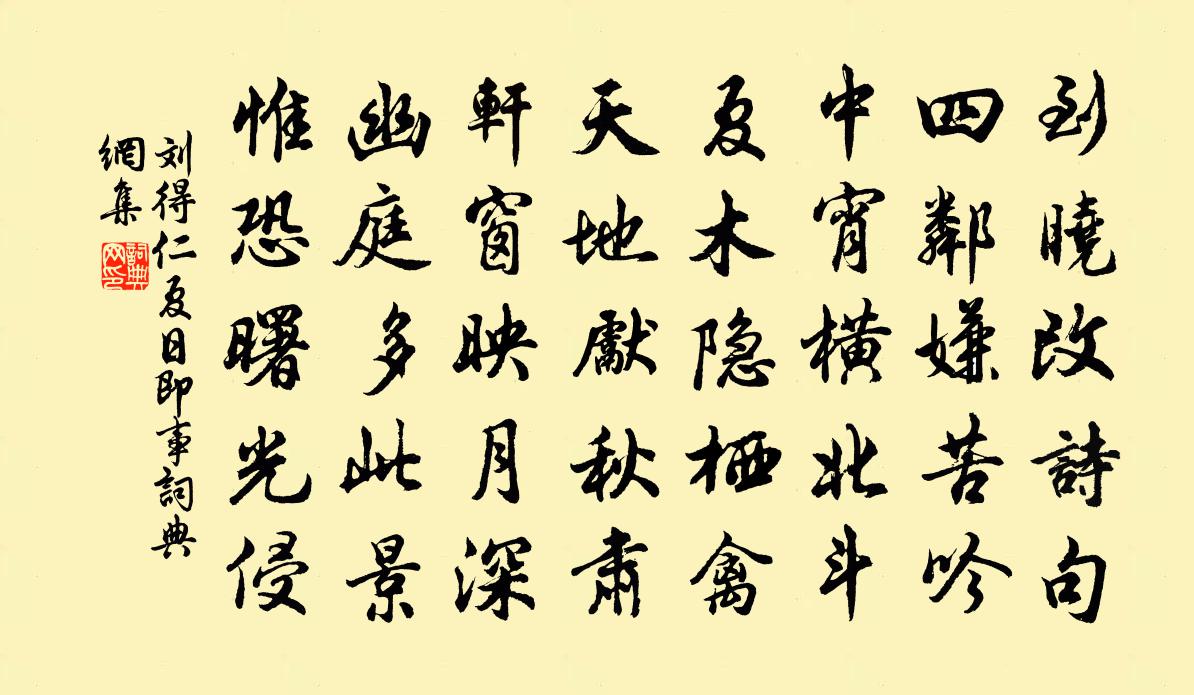 到曉改詩句
四鄰嫌苦吟
中宵橫北斗
夏木隐栖禽
天地獻秋肅
軒窗映月深
幽庭多此景
惟恐曙光侵
刘得仁夏日即事詞典
網集
詞典
网印